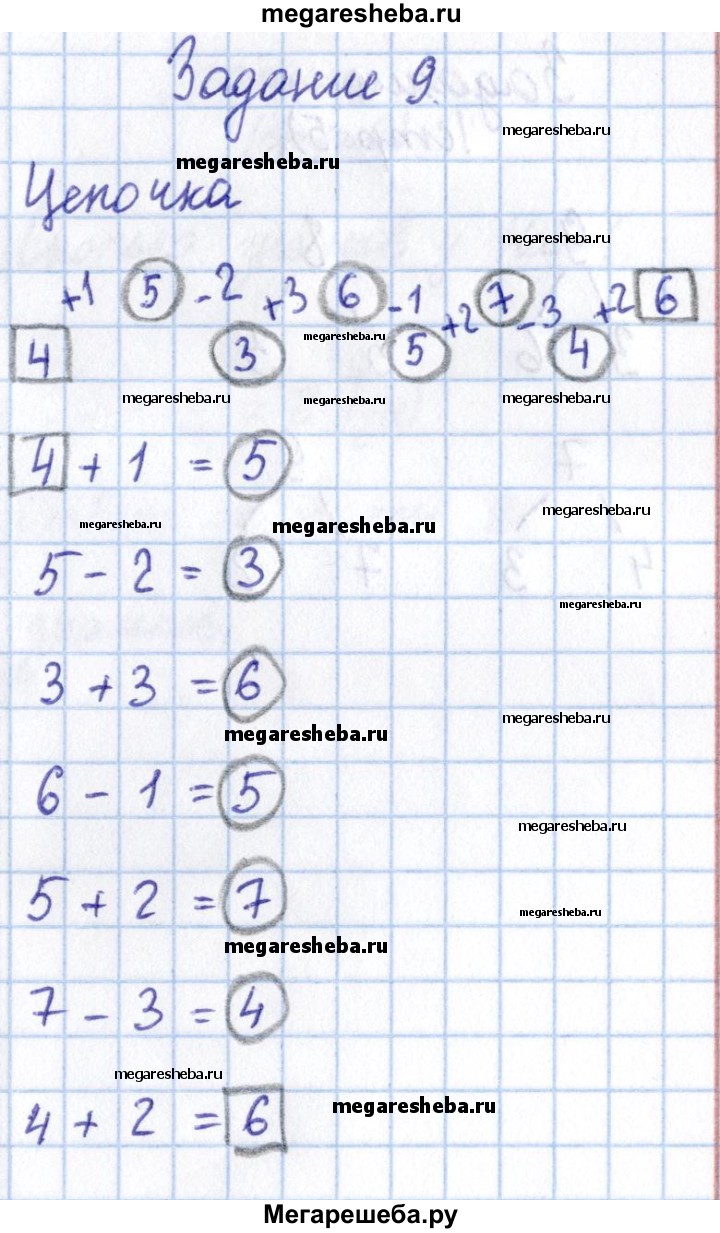 megaresheba.ru
Задание 9.
megaresheba.ru
megaresheba.ru
Цепочка
megaresheba.ru
+1 5 -2 +3 6 -1 +2 7 -3 +2 6
megaresheba.ru
4 3 5 4
megaresheba.ru megaresheba.ru megaresheba.ru
4 + 1 = 5
megaresheba.ru
megaresheba.ru megaresheba.ru
5 - 2 = 3
megaresheba.ru
3 + 3 = 6
megaresheba.ru
megaresheba.ru
6 - 1 = 5
megaresheba.ru
5 + 2 = 7
megaresheba.ru
megaresheba.ru
7 - 3 = 4
megaresheba.ru
4 + 2 = 6
megaresheba.ru
Мегарешеба.ру